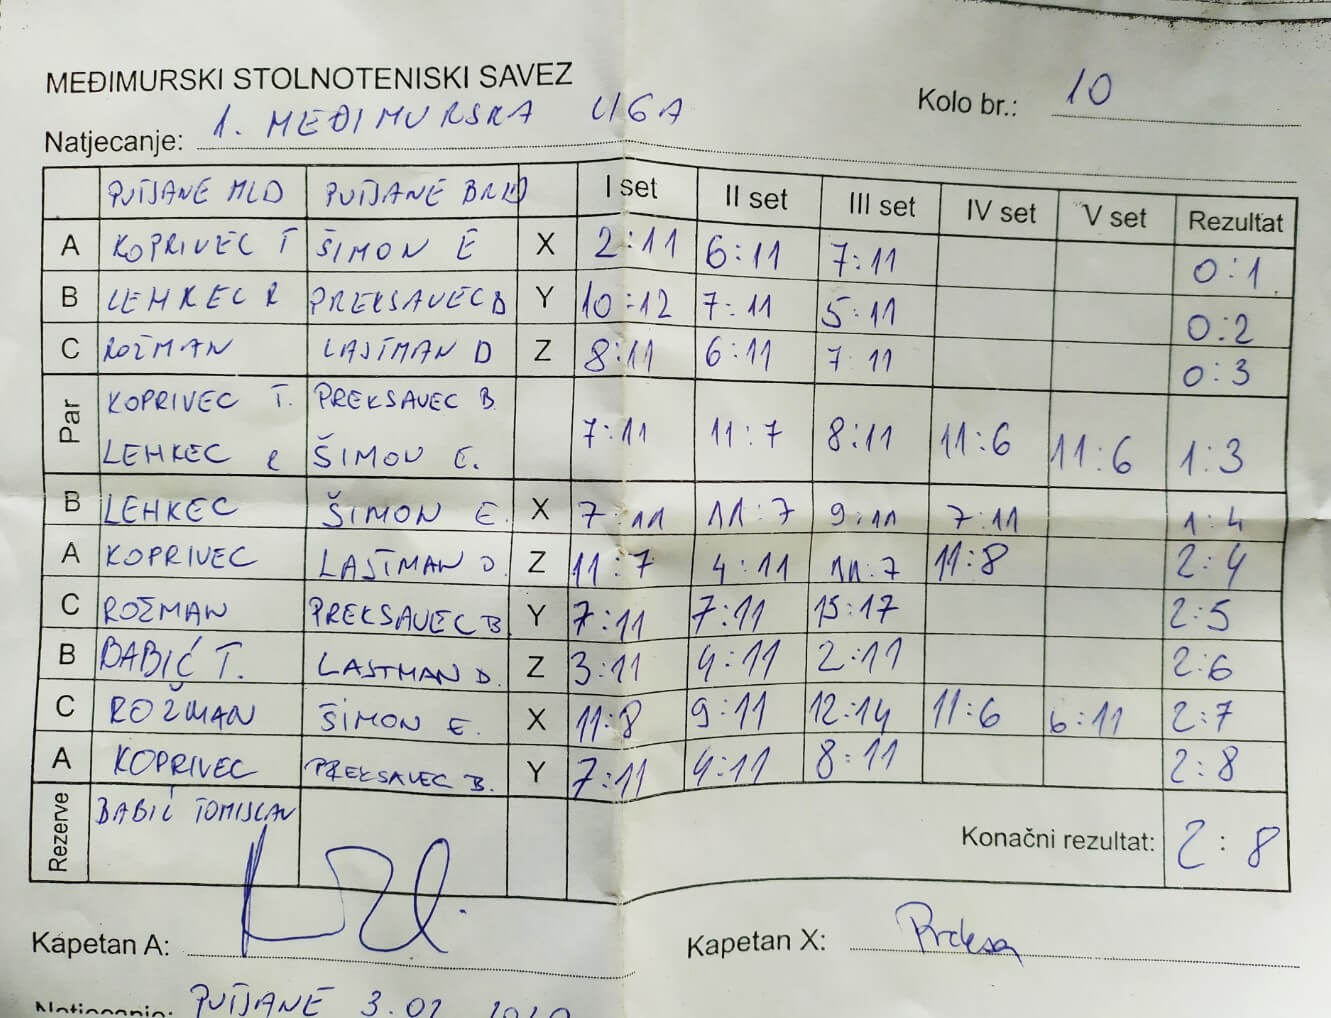 MEĐIMURSKI STOLNOTENISKI SAVEZ
Kolo br.: 10
Natjecanje: 1. MEĐIMURSKA LIGA
PUŠĆANE MLD PUŠĆANE BRU I set II set III set IV set V set Rezultat
A KOPRIVEC T ŠIMON E X 2:11 6:11 7:11 0:1
B LEHKEC R PREKSAVEC B Y 10:12 7:11 5:11 0:2
C ROŽMAN LASTMAN D Z 8:11 6:11 7:11 0:3
Par KOPRIVEC T. PREKSAVEC B. 7:11 11:7 8:11 11:6 11:6 1:3
LEHKEC R ŠIMON E.
B LEHKEC ŠIMON E. X 7:11 11:7 9:11 7:11 1:4
A KOPRIVEC LASTMAN D. Z 11:7 4:11 11:7 11:8 2:4
C ROŽMAN PREKSAVEC B Y 7:11 7:11 15:17 2:5
B BABIĆ T. LASTMAN D. Z 3:11 4:11 2:11 2:6
C ROŽMAN ŠIMON E. X 11:8 9:11 12:14 11:6 6:11 2:7
A KOPRIVEC PREKSAVEC B. Y 7:11 4:11 8:11 2:8
Rezerve BABIĆ TOMISLAV
Konačni rezultat: 2:8
Kapetan A:
Kapetan X:
3.02